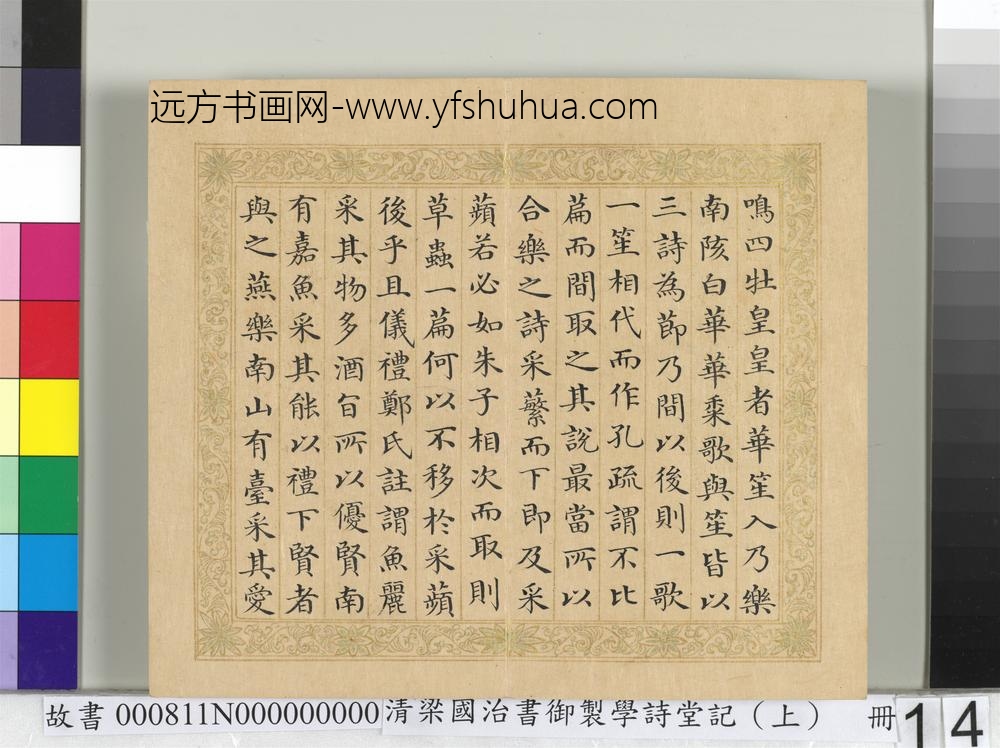 远方书画网-www.yfshuhua.com
鳴四牡皇皇者華笙入乃樂
南陔白華華黍歌與笙皆以
三詩為節乃間以後則一歌
一笙相代而作孔疏謂不比
篇而間取之其說最當所以
合樂之詩采蘩而下即及采
蘋若必如朱子相次而取則
草蟲一篇何以不移於采蘋
後乎且儀禮鄭氏註謂魚麗
采其物多酒旨所以優賢南
有嘉魚采其能以禮下賢者
與之燕樂南山有臺采其愛
故書 000811N000000000 清梁國治書御製學詩堂記（上） 冊 14